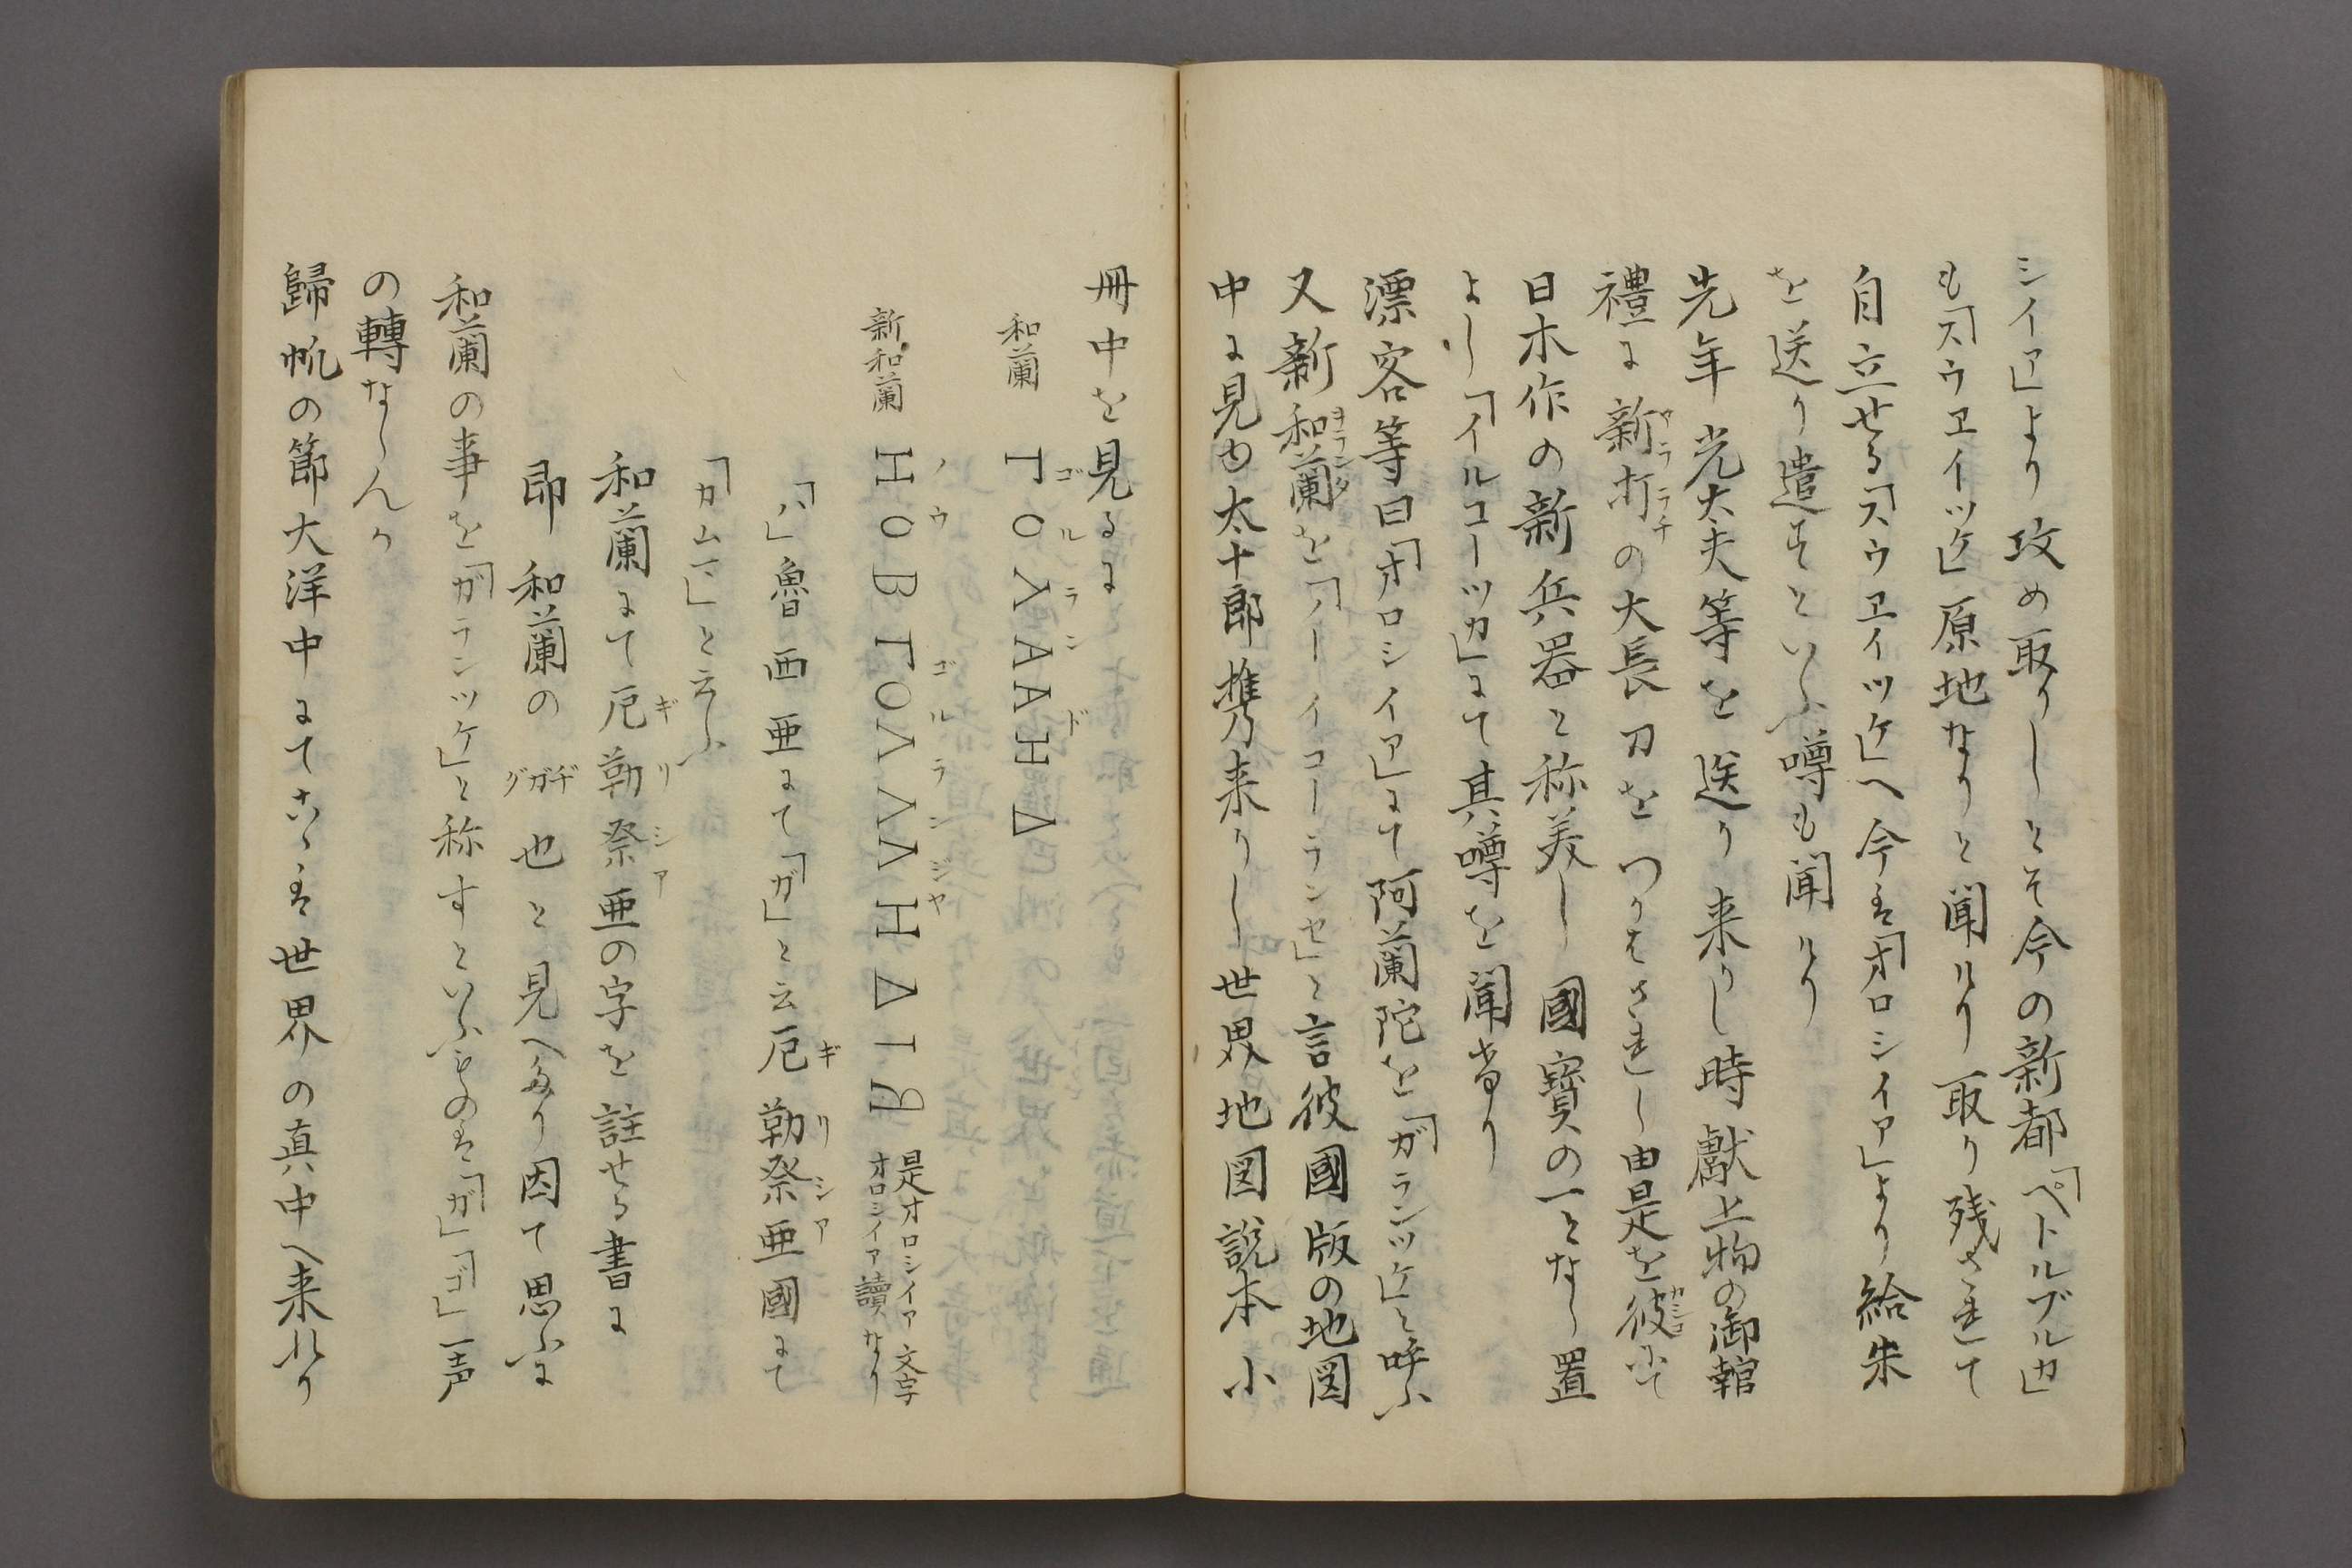 シイア」より攻め取りしとそ今の新都「ペトルブルカ」
も「スウヱイツケ」原地なりと聞けり取り残されて
自立せる「スウヱイツケ」へ今は「オロシイア」より給米
を送り遣すといふ噂も聞けり
先年光太夫等を送り来りし時献上物の御
禮に新打の大長刀をつかはされし由是を彼にて
アラウチ
カシコ
日本作の新兵器と称美し國寳の一となし置
よし「イルコーツカ」にて其噂を聞当り
漂客等曰「オロシイア」にて阿蘭陀を「ガランツケ」と呼ふ
又新和蘭を「ノーイコーランセ」と言彼國版の地図
ヲランダ
中に見ゆ太十郎携来りし世界地図説本小
冊中を見るに
和蘭 ГОΛΛАНД
ゴルランド
新和蘭 НОВГОΛΛАНДІЯ 是オロシイア文字
オロシイア讀なり
ノウゴルランジヤ
「ハ」魯西亜にて「ガ」と云厄勒祭亜國にて
ギリシア
「カムマ」と云ふ
和蘭にて厄勒祭亜の字を註せる書に
ギリシア
即和蘭のヂガグ也と見へたり因て思ふに
和蘭の事を「ガランツケ」と称すといふものは「ガ」「ゴ」一声
の轉ならんか
歸帆の節大洋中にてこゝは世界の真中へ来れり